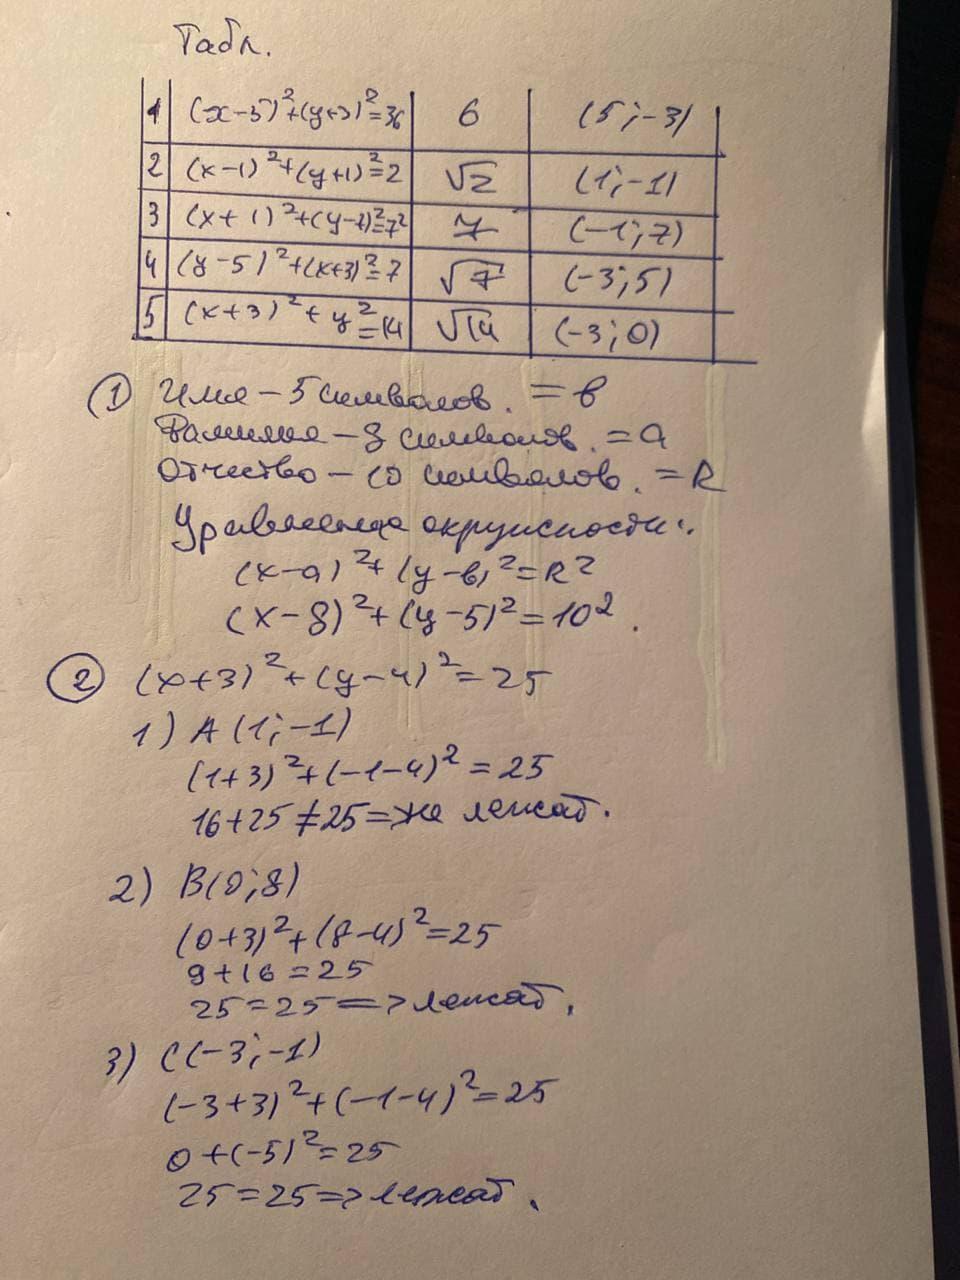 Табл.
1 (x-5)²+(y+3)²=36 6 (5;-3)
2 (x-1)²+(y+1)²=2 √2 (1;-1)
3 (x+1)²+(y-7)²=7² 7 (-1;7)
4 (y-5)²+(x+3)²=7 √7 (-3;5)
5 (x+3)²+y²=14 √14 (-3;0)
① Имя - 5 символов. = в
Фамилия - 8 символов. = a
Отчество - 10 символов. = R
Уравнение окружности:
(x-a)²+(y-в)²=R²
(x-8)²+(y-5)²=10².
② (x+3)²+(y-4)²=25
1) A(1;-1)
(1+3)²+(-1-4)²=25
16+25≠25=>не лежат.
2) B(0;8)
(0+3)²+(8-4)²=25
9+16=25
25=25=>лежат.
3) C(-3;-1)
(-3+3)²+(-1-4)²=25
0+(-5)²=25
25=25=>лежат.